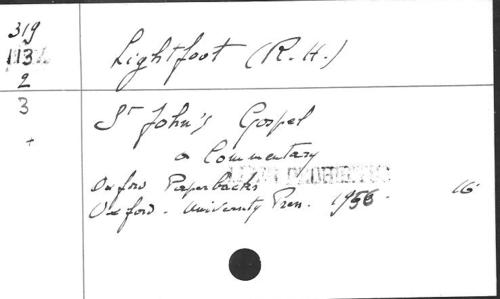 319
113
2
3
+
Lightfoot (R.H.)
St John's Gospel
a Commentary
Oxford Paperbacks
Oxford. University Press. 1956. 16